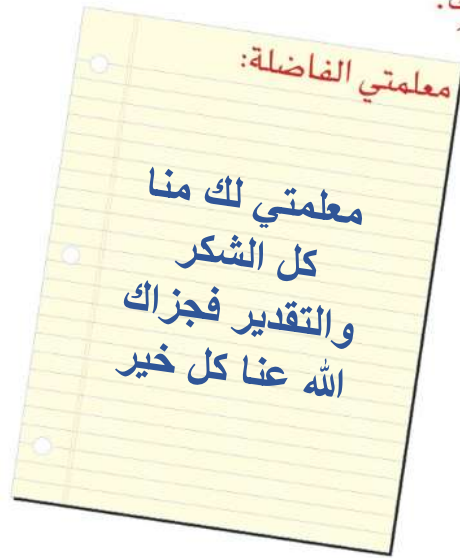 معلمتي الفاضلة:
معلمتي لك منا
كل الشكر
والتقدير فجزاك
الله عنا كل خير